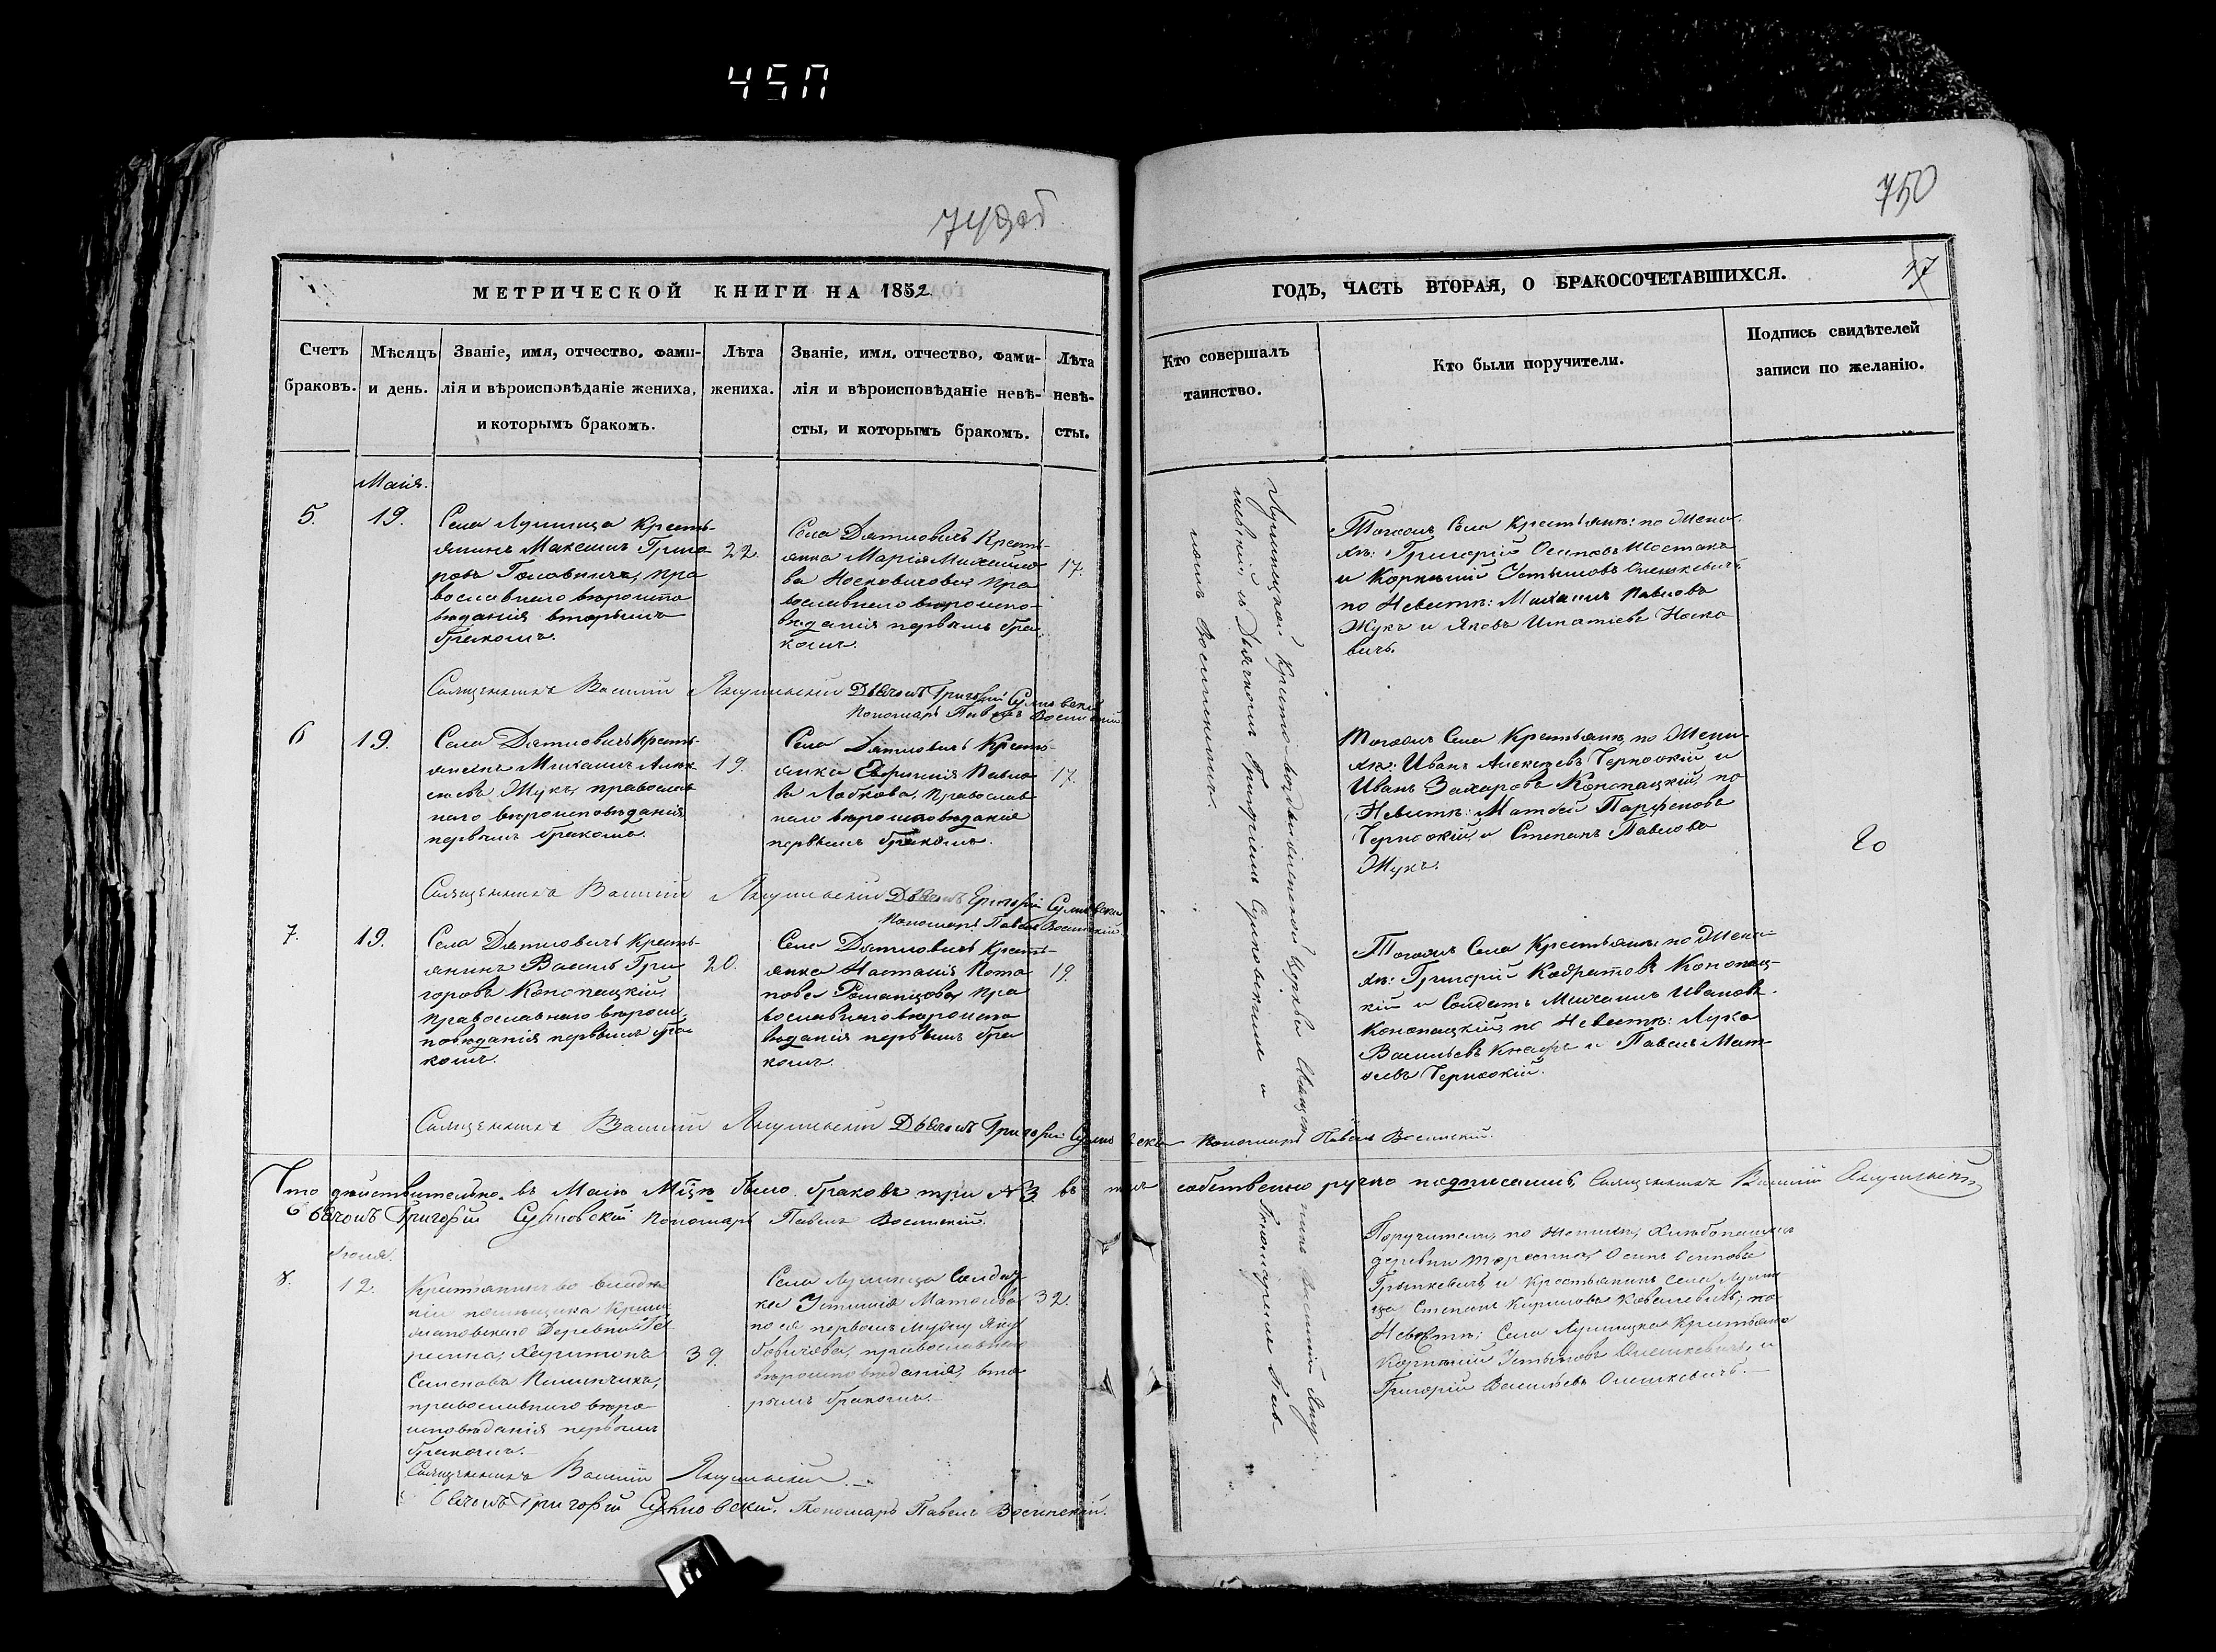 45П
749об
750
МЕТРИЧЕСКОЙ КНИГИ НА 1852.
ГОДЪ, ЧАСТЬ ВТОРАЯ, О БРАКОСОЧЕТАВШИХСЯ.
17
Счетъ
браковъ.
Мѣсяцъ
и день.
Званіе, имя, отчество, фами-
лія и вѣроисповѣданіе жениха,
и которымъ бракомъ.
Лѣта
жениха.
Званіе, имя, отчество, фами-
лія и вѣроисповѣданіе невѣ-
сты, и которымъ бракомъ.
Лѣта
невѣ-
сты.
Кто совершалъ
таинство.
Кто были поручители.
Подпись свидѣтелей
записи по желанію.
Маія.
5.
19.
Села Лунинца Кресть-
янинъ Максимъ Григо
ровъ Головничъ, пра
вославнаго вѣроиспо
вѣданія вторымъ
бракомъ.
22.
Села Дятловичъ Кресть-
янка Марія Михайло
ва Носковичова пра
вославнаго вѣроиспо-
вѣданія первымъ бра
комъ.
17.
Тогожъ Села Крестьяне: по Жени
хѣ: Григорій Осиповъ Шостакъ
и Корнилій Устиновъ Олешкевичъ,
по Невѣстѣ: Михаилъ Павловъ
Жукъ и Яковъ Игнатіевъ Носко
вичъ.
Священникъ Василій Якульскій Дьячокъ Григорій Сулковскій
Пономарь Павелъ Восинскій.
6
19.
Села Дятловичъ Кресть-
янинъ Михаилъ Алек
сѣевъ Жукъ, православ
наго вѣроисповѣданія
первымъ бракомъ.
19.
Села Дятловичъ Кресть-
янка Евфимія Павло
ва Лобкова, Православ
наго вѣроисповѣданія
первымъ бракомъ.
17.
Тогожъ Села Крестьяне, по Жени-
хѣ: Иванъ Алексѣевъ Черноокій и
Иванъ Захаровъ Конопацкій, по
Невѣстѣ: Матвей Парфеновъ
Черноокій, и Степанъ Павловъ
Жукъ.
20
Священникъ Василій Якульскій Дьячокъ Григорій Сулковскій
Пономарь Павелъ Восинскій.
7.
19.
Села Дятловичъ Кресть-
янинъ Василь Гри
горовъ Конопацкій,
православнаго вѣроис-
повѣданія первымъ бра
комъ.
20.
Села Дятловичъ Кресть-
янка Настасія Пота
пова Романцова, пра
вославнаго вѣроиспо
вѣданія первымъ бра
комъ.
19.
Тогожъ Села Крестьяне, по Жени-
хѣ: Григорій Кодратовъ Конопац-
кій и Солдатъ Михаилъ Ивановъ
Конопацкій, по Невѣстѣ: Лука
Васильевъ и Павелъ Мат
Черноокій.
Священникъ Василій Якульскій Дьячокъ Григорій Сулковскій Пономарь Павелъ Восинскій.
Что дѣйствительно въ Маіѣ М-цѣ было браковъ три №3 въ томъ собственно ручно подписались, Священникъ Василій Якульскій
Дьячокъ Григорій Сулковскій Пономарь Павелъ Восинскій.
Іюня.
8.
12.
Крестьянинъ во владѣ
ніи помѣщика
Деревни
Харитонъ
Семеновъ
православнаго вѣро
исповѣданія первымъ
бракомъ.
39.
Села Лунинца Солдат
ка Устинія Матвѣева
по ея первомъ мужу
православнаго
вѣроисповѣданія, вто
рымъ бракомъ.
32.
Поручители, по Женихѣ,
деревни Осипъ Осиповъ
Грынкевичъ, и Крестьянинъ Села Лунин
ца Степанъ Кириловъ Ковалевичъ; по
Невѣстѣ: Села Лунинца Крестьяне
Корнилій Устиновъ Олешкевичъ, и
Григорій Васильевъ Олешкевичъ.
Священникъ Василій Якульскій.
Дьячокъ Григорій Сулковскій. Пономарь Павелъ Восинскій.
Лунинецкой Кресто-Воздвиженской Церкви Священникъ Василій Яку
льскій, и Дьячкомъ Григоріемъ Сулковскимъ и Пономаремъ Пав
ломъ Восинскимъ.